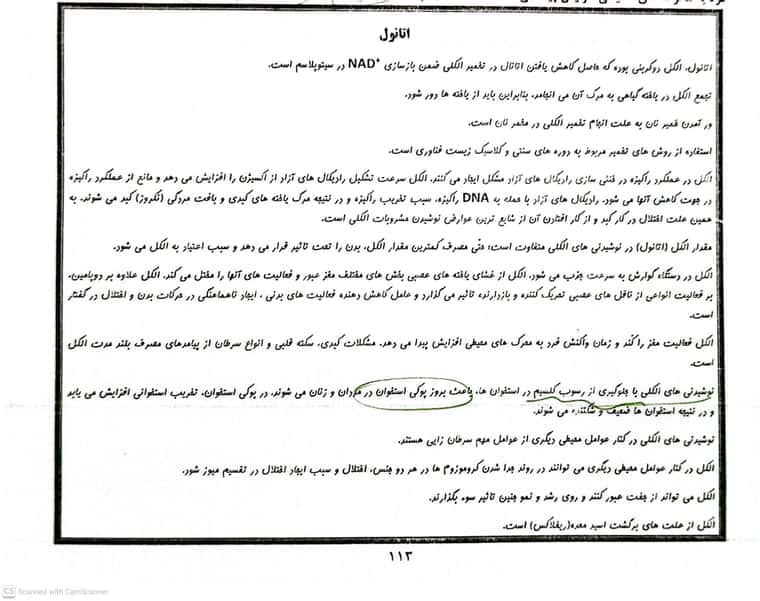 اتانول
اتانول، الکلی دوکربنی بوده که حاصل کاهش یافتن اتانال در تخمیر الکلی ضمن بازسازی NAD⁺ در سیتوپلاسم است.
تجمع الکل در یاخته گیاهی به مرگ آن می انجامد، بنابراین باید از یاخته ها دور شود.
ور آمدن خمیر نان به علت انجام تخمیر الکلی در مخمر نان است.
استفاده از روش های تخمیر مربوط به دوره های سنتی و کلاسیک زیست فناوری است.
الکل در عملکرد راکیزه در خنثی سازی رادیکال های آزاد مشکل ایجاد می کنند. الکل سرعت تشکیل رادیکال های آزاد از اکسیژن را افزایش می دهد و مانع از عملکرد راکیزه
در جهت کاهش آنها می شود. رادیکال های آزاد با حمله به DNA راکیزه، سبب تخریب راکیزه و در نتیجه مرگ یاخته های کبدی و بافت مردگی (نکروز) کبد می شوند. به
همین علت اختلال در کار کبد و از کار افتادن آن از شایع ترین عوارض نوشیدن مشروبات الکلی است.
مقدار الکل (اتانول) در نوشیدنی های الکلی متفاوت است؛ حتّی مصرف کمترین مقدار الکل، بدن را تحت تاثیر قرار می دهد و سبب اعتیاد به الکل می شود.
الکل در دستگاه گوارش به سرعت جذب می شود. الکل از غشای یاخته های عصبی بخش های مختلف مغز عبور و فعالیت های آنها را مختل می کند. الکل علاوه بر دوپامین،
بر فعالیت انواعی از ناقل های عصبی تحریک کننده و بازدارنده تاثیر می گذارد و عامل کاهش دهنده فعالیت های بدنی ، ایجاد ناهماهنگی در حرکات بدن و اختلال در گفتار
است.
الکل فعالیت مغز را کُند و زمان واکنش فرد به محرک های محیطی افزایش پیدا می دهد. مشکلات کبدی، سکته قلبی و انواع سرطان از پیامدهای مصرف بلند مدت الکل
است.
نوشیدنی های الکلی با جلوگیری از رسوب کلسیم در استخوان ها، باعث بروز پوکی استخوان در مردان و زنان می شوند. در پوکی استخوان، تخریب استخوانی افزایش می یابد
و در نتیجه استخوان ها ضعیف و شکننده می شوند.
نوشیدنی های الکلی در کنار عوامل محیطی دیگری از عوامل مهم سرطان زایی هستند.
الکل در کنار عوامل محیطی دیگری می توانند در روند جدا شدن کروموزوم ها در هر دو جنس، اختلال و سبب ایجاد اختلال در تقسیم میوز شود.
الکل می تواند از جفت عبور کنند و روی رشد و نمو جنین تاثیر سوء بگذارند.
الکل از علت های برگشت اسید معده(ریفلاکس) است.
۱۱۳
CS Scanned with CamScanner